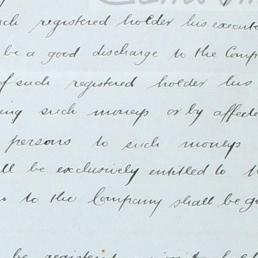 such registered holder his executo
be a good discharge to the Comp
of such registered holder his
ing such moneys or by affecte
persons to such moneys
ll be exclusively entitled to
to the Company shall be go
be